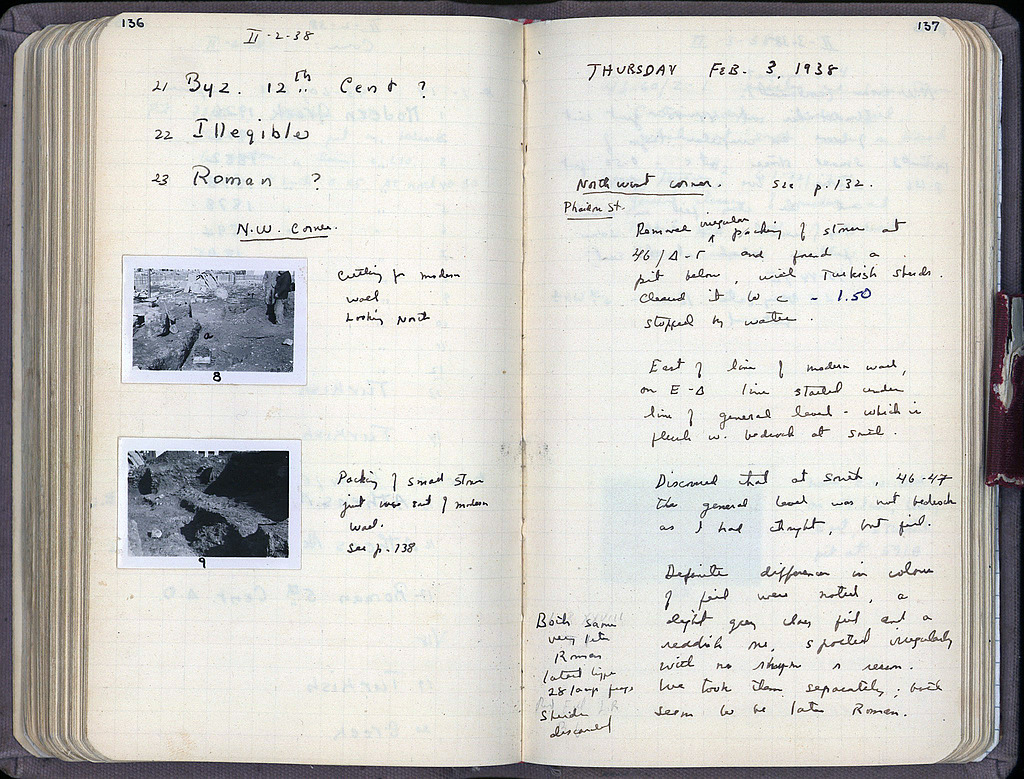 136
II-2-38
21 Byz. 12th Cent ?
22 Illegible
23 Roman ?
N.W. Corner.
Cutting for modern
wall
Looking North
a
8
Packing of small stone
just was east of modern
wall.
See p. 138
9
137
THURSDAY FEB. 3, 1938
Northwest corner. See p. 132.
Phaidon St.
Removed irregular packing of stones at
46/Δ-Γ and found a
pit below, with Turkish sherds.
Cleared it to c - 1.50
stopped by water.
East of line of modern wall,
on E-Δ line started under
line of general level - which is
flush w. bedrock at south.
Discovered that at South, 46-47
the general level was not bedrock
as I had thought, but fill.
Definite differences in colour
of fill were noted, a
light grey clay fill and a
reddish one, spotted irregularly
with no rhyme or reason.
We took them separately; both
seem to be later Roman.
Both same
very late
Roman
latest type
28 lamp frags
Sherds
discarded